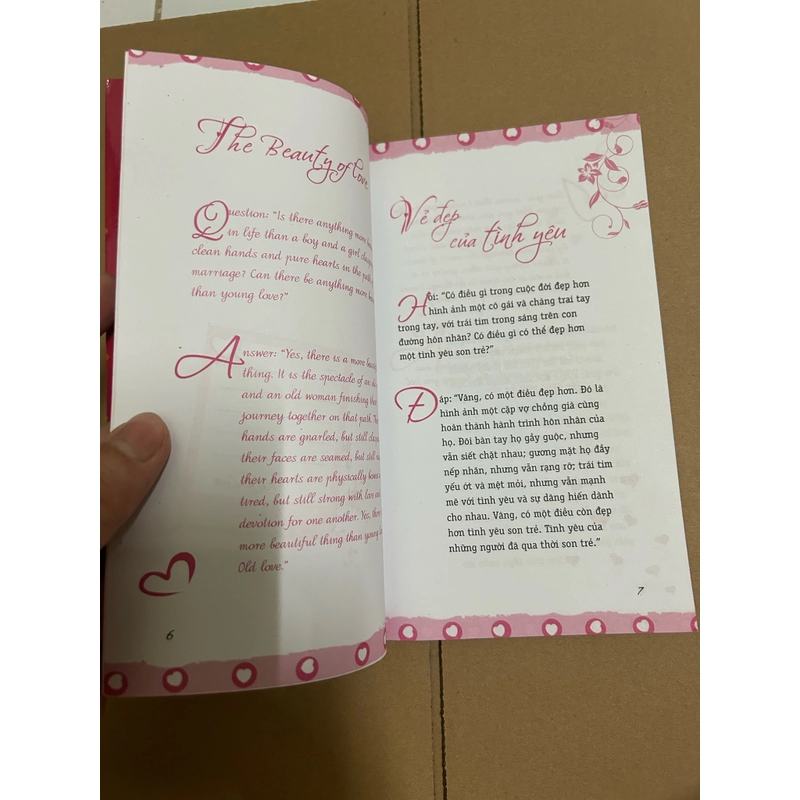 The Beauty of Love
Question: "Is there anything more
in life than a boy and a girl
clean hands and pure hearts in the
marriage? Can there be anything more
than young love?"
Answer: "Yes, there is a more
thing. It is the spectacle of an
and an old woman finishing
journey together on that path.
hands are gnarled, but still
their faces are seamed, but still
their hearts are physically
tired, but still strong with love
devotion for one another. Yes,
more beautiful thing than young
Old love."
6
Vẻ đẹp
của tình yêu
Hỏi: "Có điều gì trong cuộc đời đẹp hơn
hình ảnh một cô gái và chàng trai tay
trong tay, với trái tim trong sáng trên con
đường hôn nhân? Có điều gì có thể đẹp hơn
một tình yêu son trẻ?"
Đáp: "Vâng, có một điều đẹp hơn. Đó là
hình ảnh một cặp vợ chồng già cùng
hoàn thành hành trình hôn nhân của
họ. Đôi bàn tay họ gầy guộc, nhưng
vẫn siết chặt nhau; gương mặt họ đầy
nếp nhăn, nhưng vẫn rạng rỡ; trái tim
yếu ớt và mệt mỏi, nhưng vẫn mạnh
mẽ với tình yêu và sự dâng hiến dành
cho nhau. Vâng, có một điều còn đẹp
hơn tình yêu son trẻ. Tình yêu của
những người đã qua thời son trẻ."
7